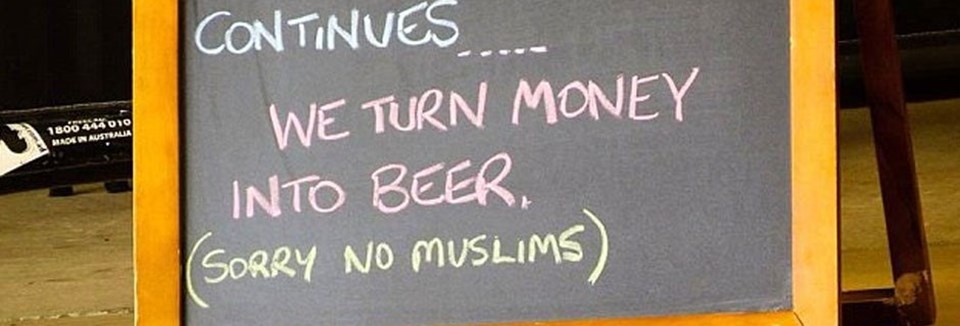 CONTINUES.....
WE TURN MONEY
INTO BEER.
(SORRY NO MUSLIMS)
1800 444 010
MADE IN AUSTRALIA